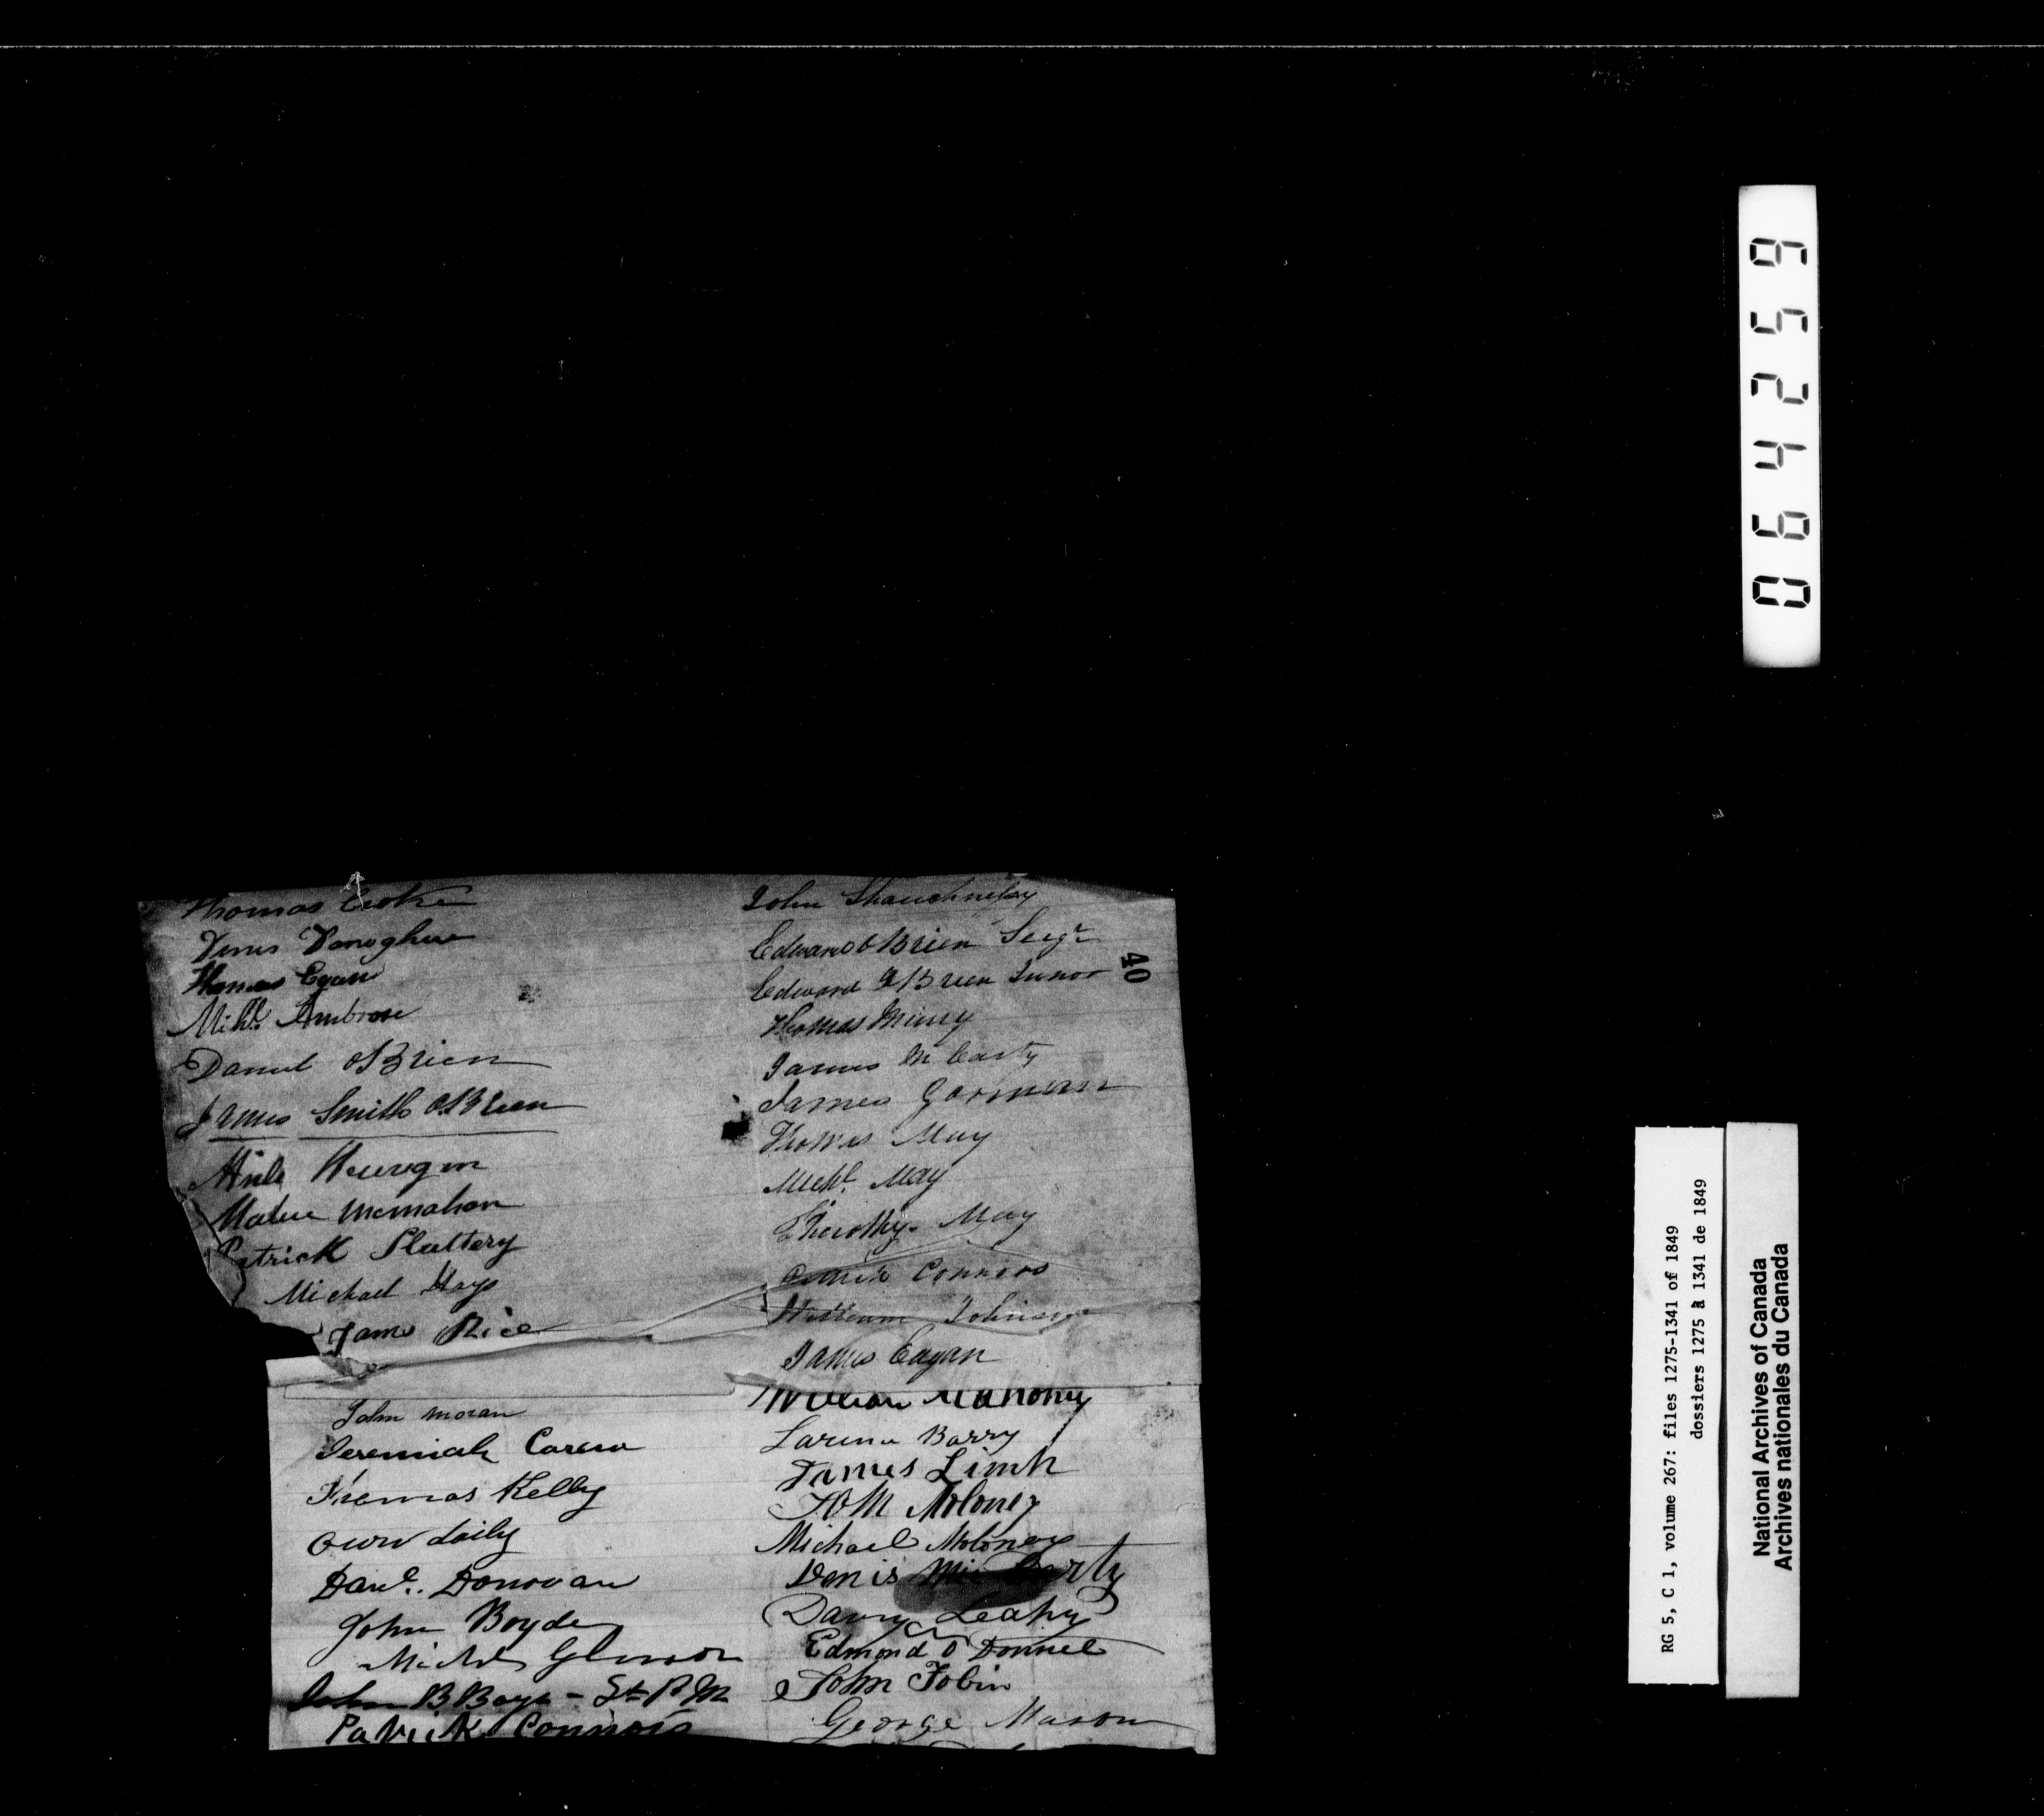 Thomas Croke
Denis Donoghue
Thomas Egan
Michl. Ambrose
Daniel OBrien
James Smith OBrien
McMahon
Patrick Slattery
Michael Hays
James Rice
John Moran
Jeremiah Carew
Thomas Kelly
Owen daily
Danl. Donovan
John Boyde
Michl
John B
Patrick Connors
John Shaughnessy
Edward OBrien
Edward OBrien Junor
Thomas
James Mc Carty
James Gorman
Thomas May
Michl. May
May
Connors
William Johnson
James Eagan
William Mahoney
Barry
James Limh
TOM Moloney
Michael Moloney
Denis Mc Carty
Leahy
Edmond O Donnel
John Tobin
George Mason
40
064259
RG 5, C 1, volume 267: files 1275-1341 of 1849
dossiers 1275 à 1341 de 1849
National Archives of Canada
Archives nationales du Canada